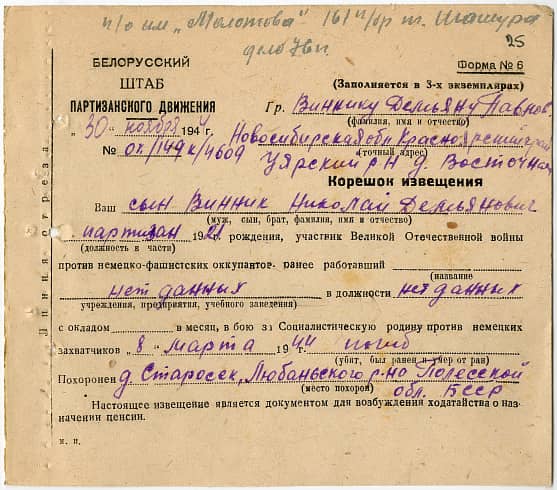 п/о им „Молотова" 161 п/бр т. Шашура
дело 76 п.
25
БЕЛОРУССКИЙ
ШТАБ
ПАРТИЗАНСКОГО ДВИЖЕНИЯ
„30" ноября 194 г.
№ ок/149к/4609
Форма № 6
(Заполняется в 3-х экземплярах)
Гр. Виннику Демьяну Павлов.
(фамилия, имя и отчество)
Новосибирская обл Красноярский край
(точный адрес)
Уярский р-н д. Восточная
Корешок извещения
Ваш сын Винник Николай Демьянович
(муж, сын, брат, фамилия, имя и отчество)
партизан 1921 рождения, участник Великой Отечественной войны
(должность в части)
против немецко-фашистских оккупантов. ранее работавший
(название
нет данных в должности нет данных
учреждения, предприятия, учебного заведения)
с окладом в месяц, в бою за Социалистическую родину против немецких
захватчиков „8 марта 1944 погиб
(убит, был ранен и умер от ран)
Похоронен д Старосек, Любаньского р-на Полесской
(место похорон)
обл. БССР
Настоящее извещение является документом для возбуждения ходатайства о на-
значении пенсии.
м. п.
Линия отреза